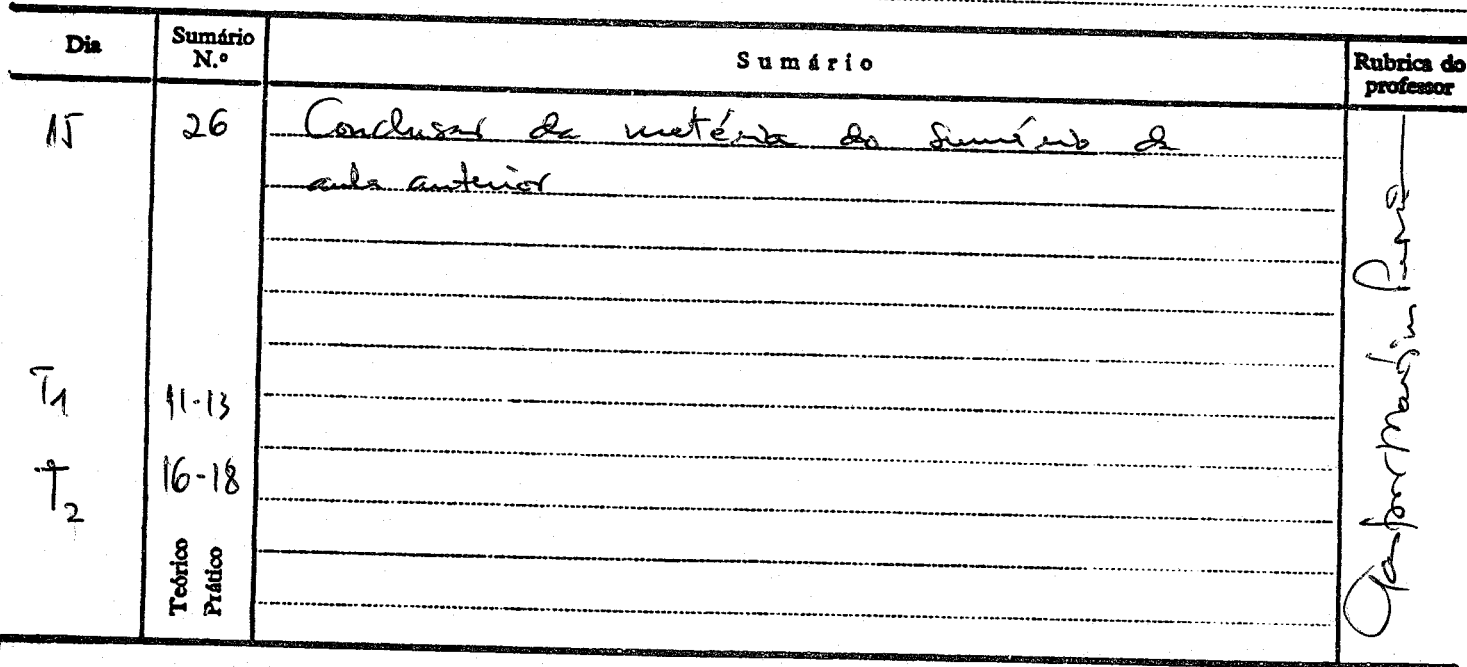 Dia Sumário N.º Sumário Rubrica do professor
15 26 Conclusão da matéria do sumário da
aula anterior
T1 11-13
T2 16-18
Teórico
Prático